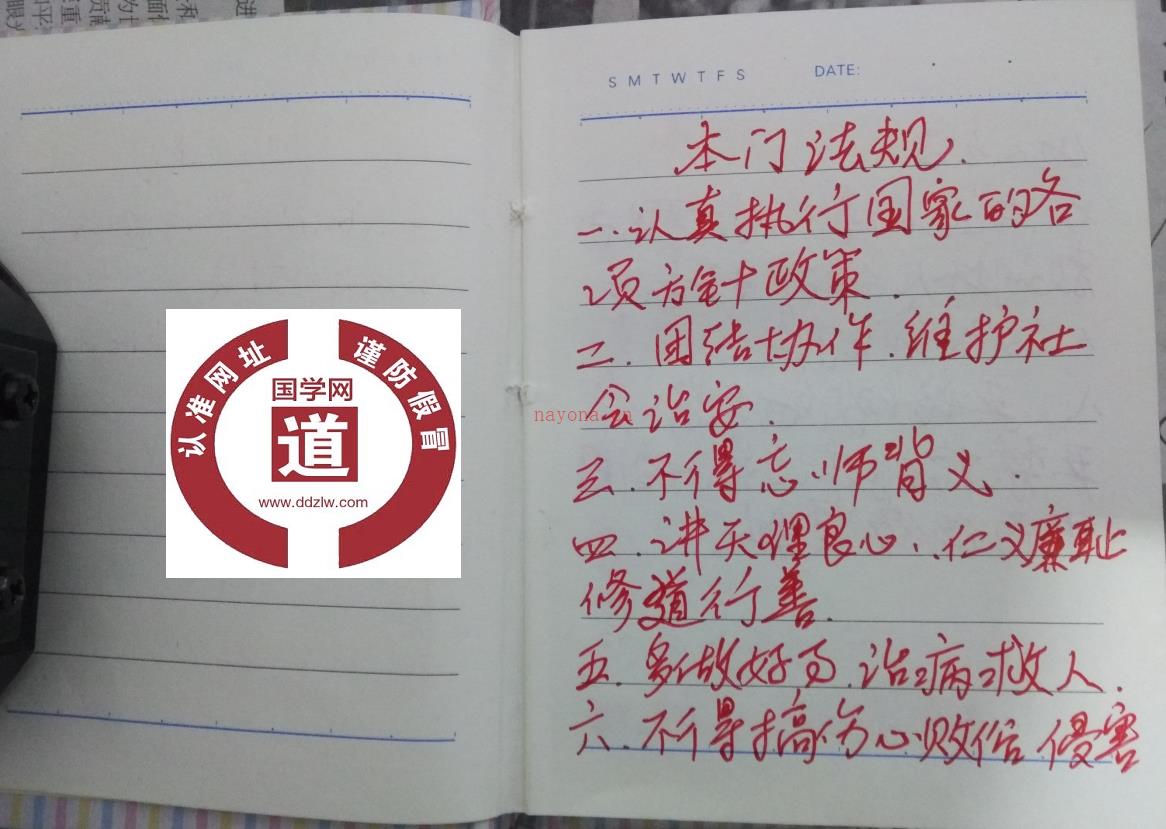 认准网址 谨防假冒
国学网
道
www.ddzlw.com
S M T W T F S DATE:
本门法规.
一.认真执行国家的各
项方针政策.
二.团结协作.维护社
会治安.
nayona.cn
三.不得忘师背义.
四.讲天理良心.仁义廉耻
修道行善.
五.多做好事.治病救人.
六.不得搞伤心败俗侵害